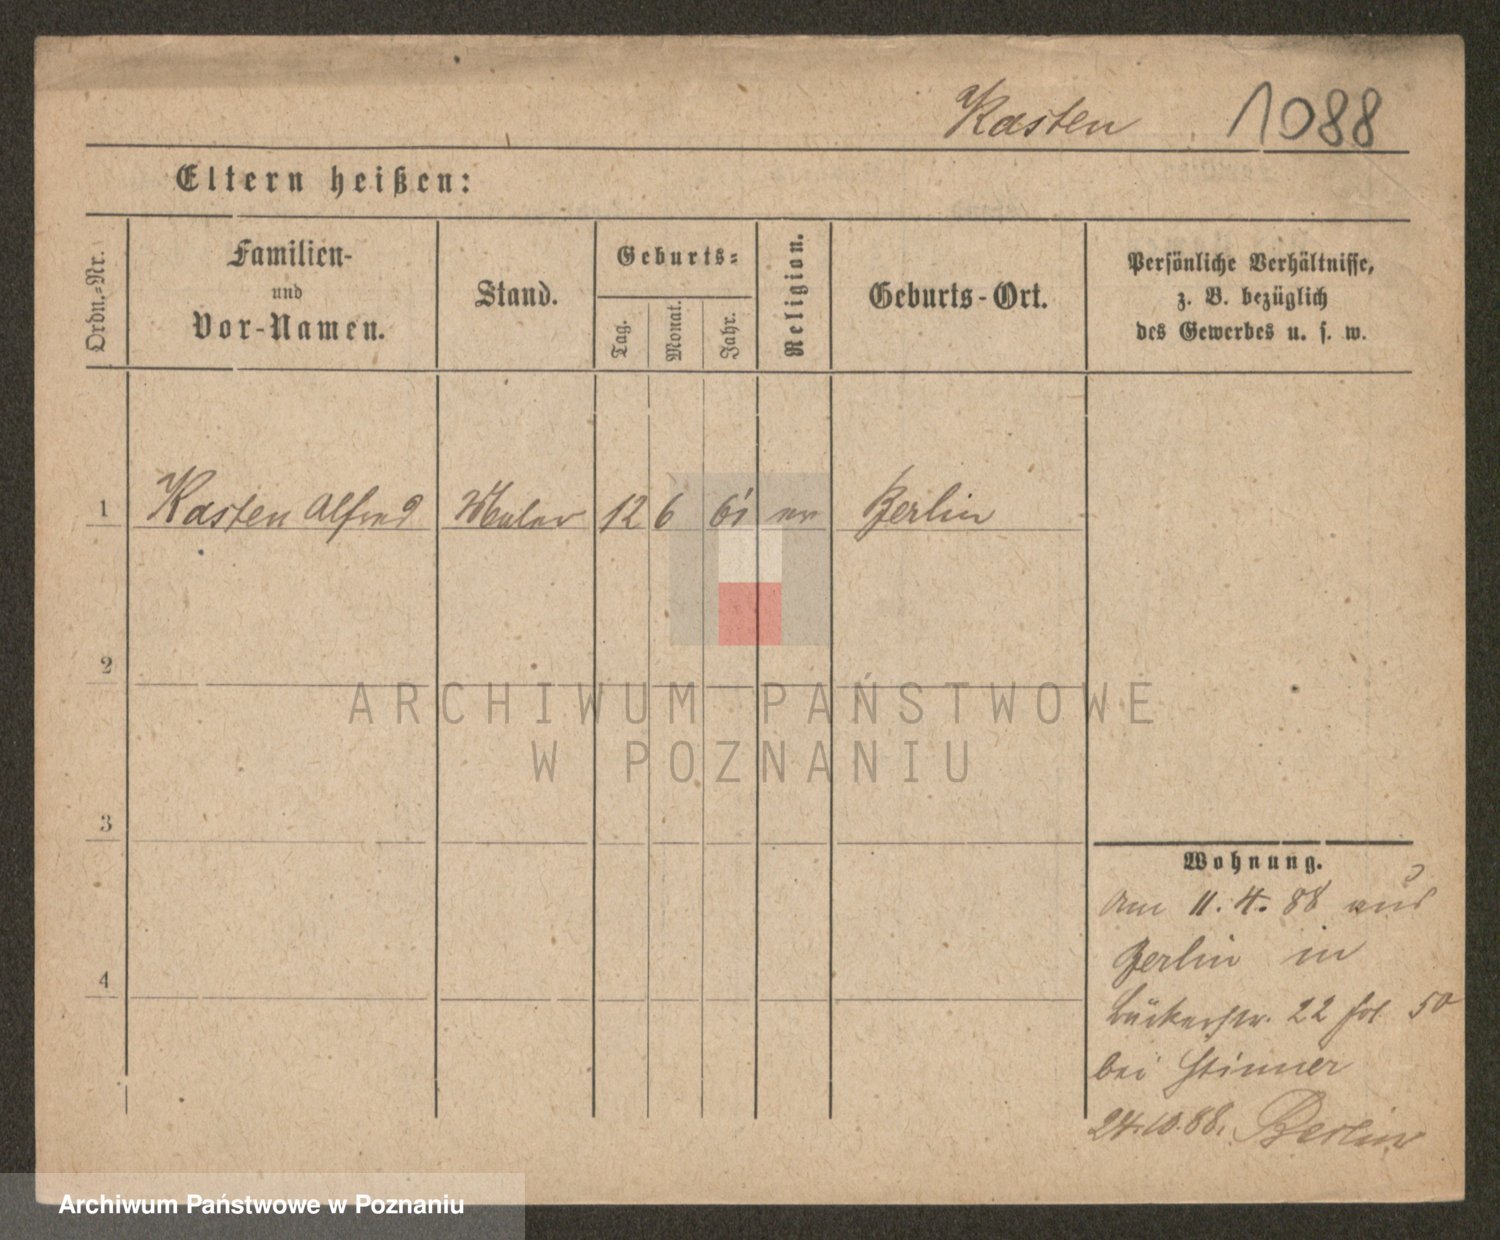 Kasten 1088
Eltern heißen:
Ordn.-Nr.
Familien-
und
Vor-Namen.
Stand.
Geburts-
Tag.
Monat.
Jahr.
Religion.
Geburts-Ort.
Persönliche Verhältnisse,
z. B. bezüglich
des Gewerbes u. s. w.
1 Kasten Alfred Maler 12 6 61 ev Berlin
2
3
4
Wohnung.
Am 11.4.88 aus
Berlin in
Bäckerstr. 22 fol 50
bei Stinner
24.10.88. Berlin
ARCHIWUM PAŃSTWOWE
W POZNANIU
Archiwum Państwowe w Poznaniu